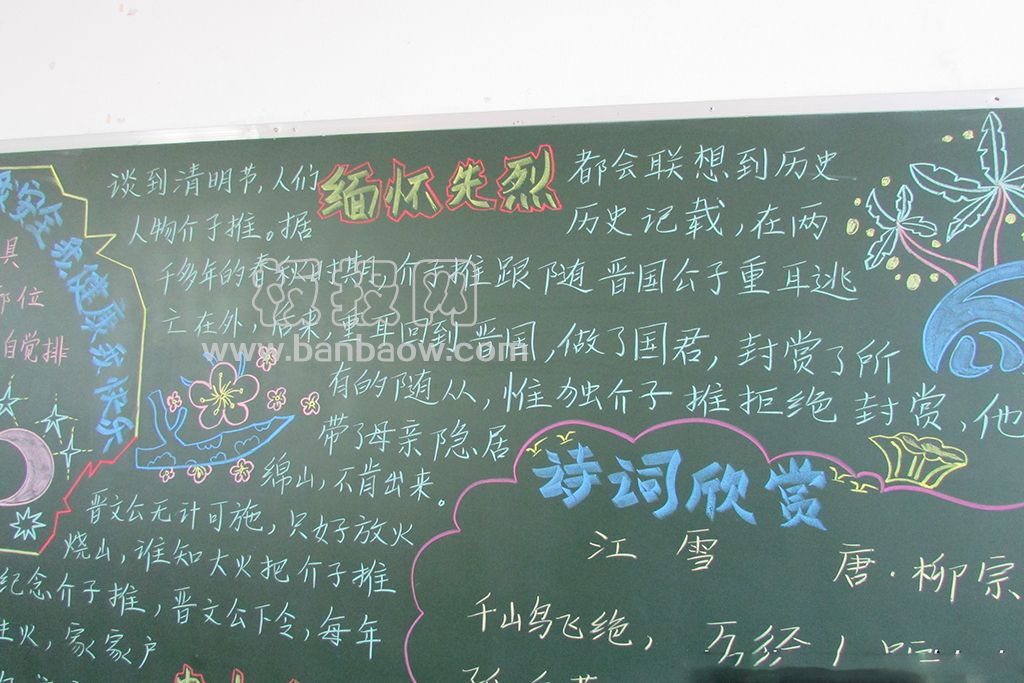 缅怀先烈
谈到清明节,人们都会联想到历史
人物介子推。据历史记载,在两
千多年的春秋时期,介子推跟随晋国公子重耳逃
亡在外,后来,重耳回到晋国,做了国君,封赏了所
有的随从,惟独介子推拒绝封赏,他
带了母亲隐居
绵山,不肯出来。
晋文公无计可施,只好放火
烧山,谁知大火把介子推
纪念介子推,晋文公下令,每年
火,家家户
具
部位
自觉排
快乐
诗词欣赏
江雪
唐·柳宗
千山鸟飞绝,
www.banbaow.com